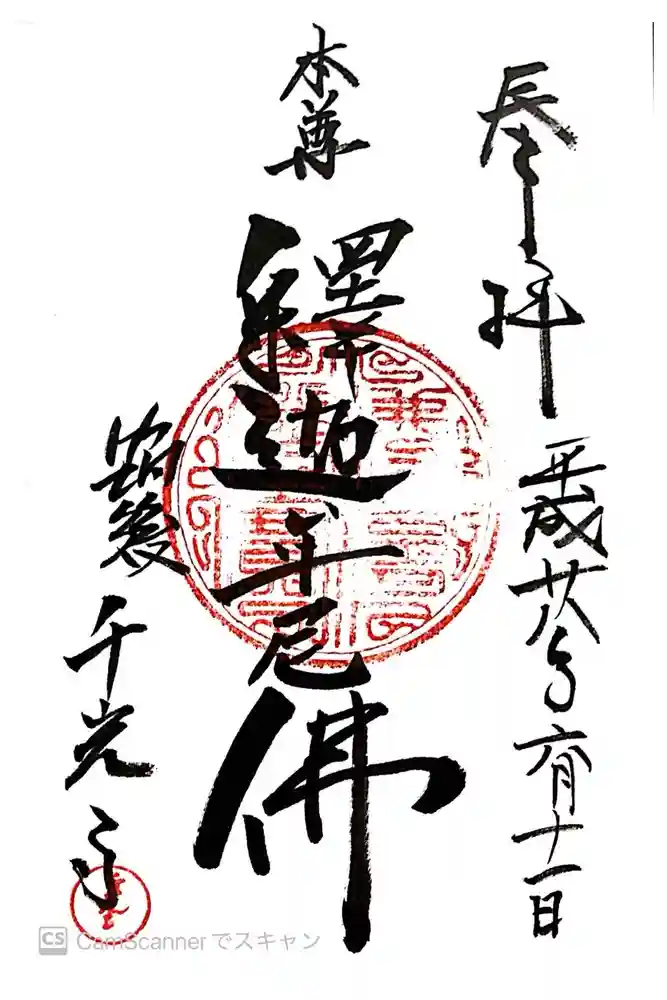 奉拝　平成廿八年六月十一日
本尊
釋迦牟尼佛
筑後　千光寺
CS CamScannerでスキャン